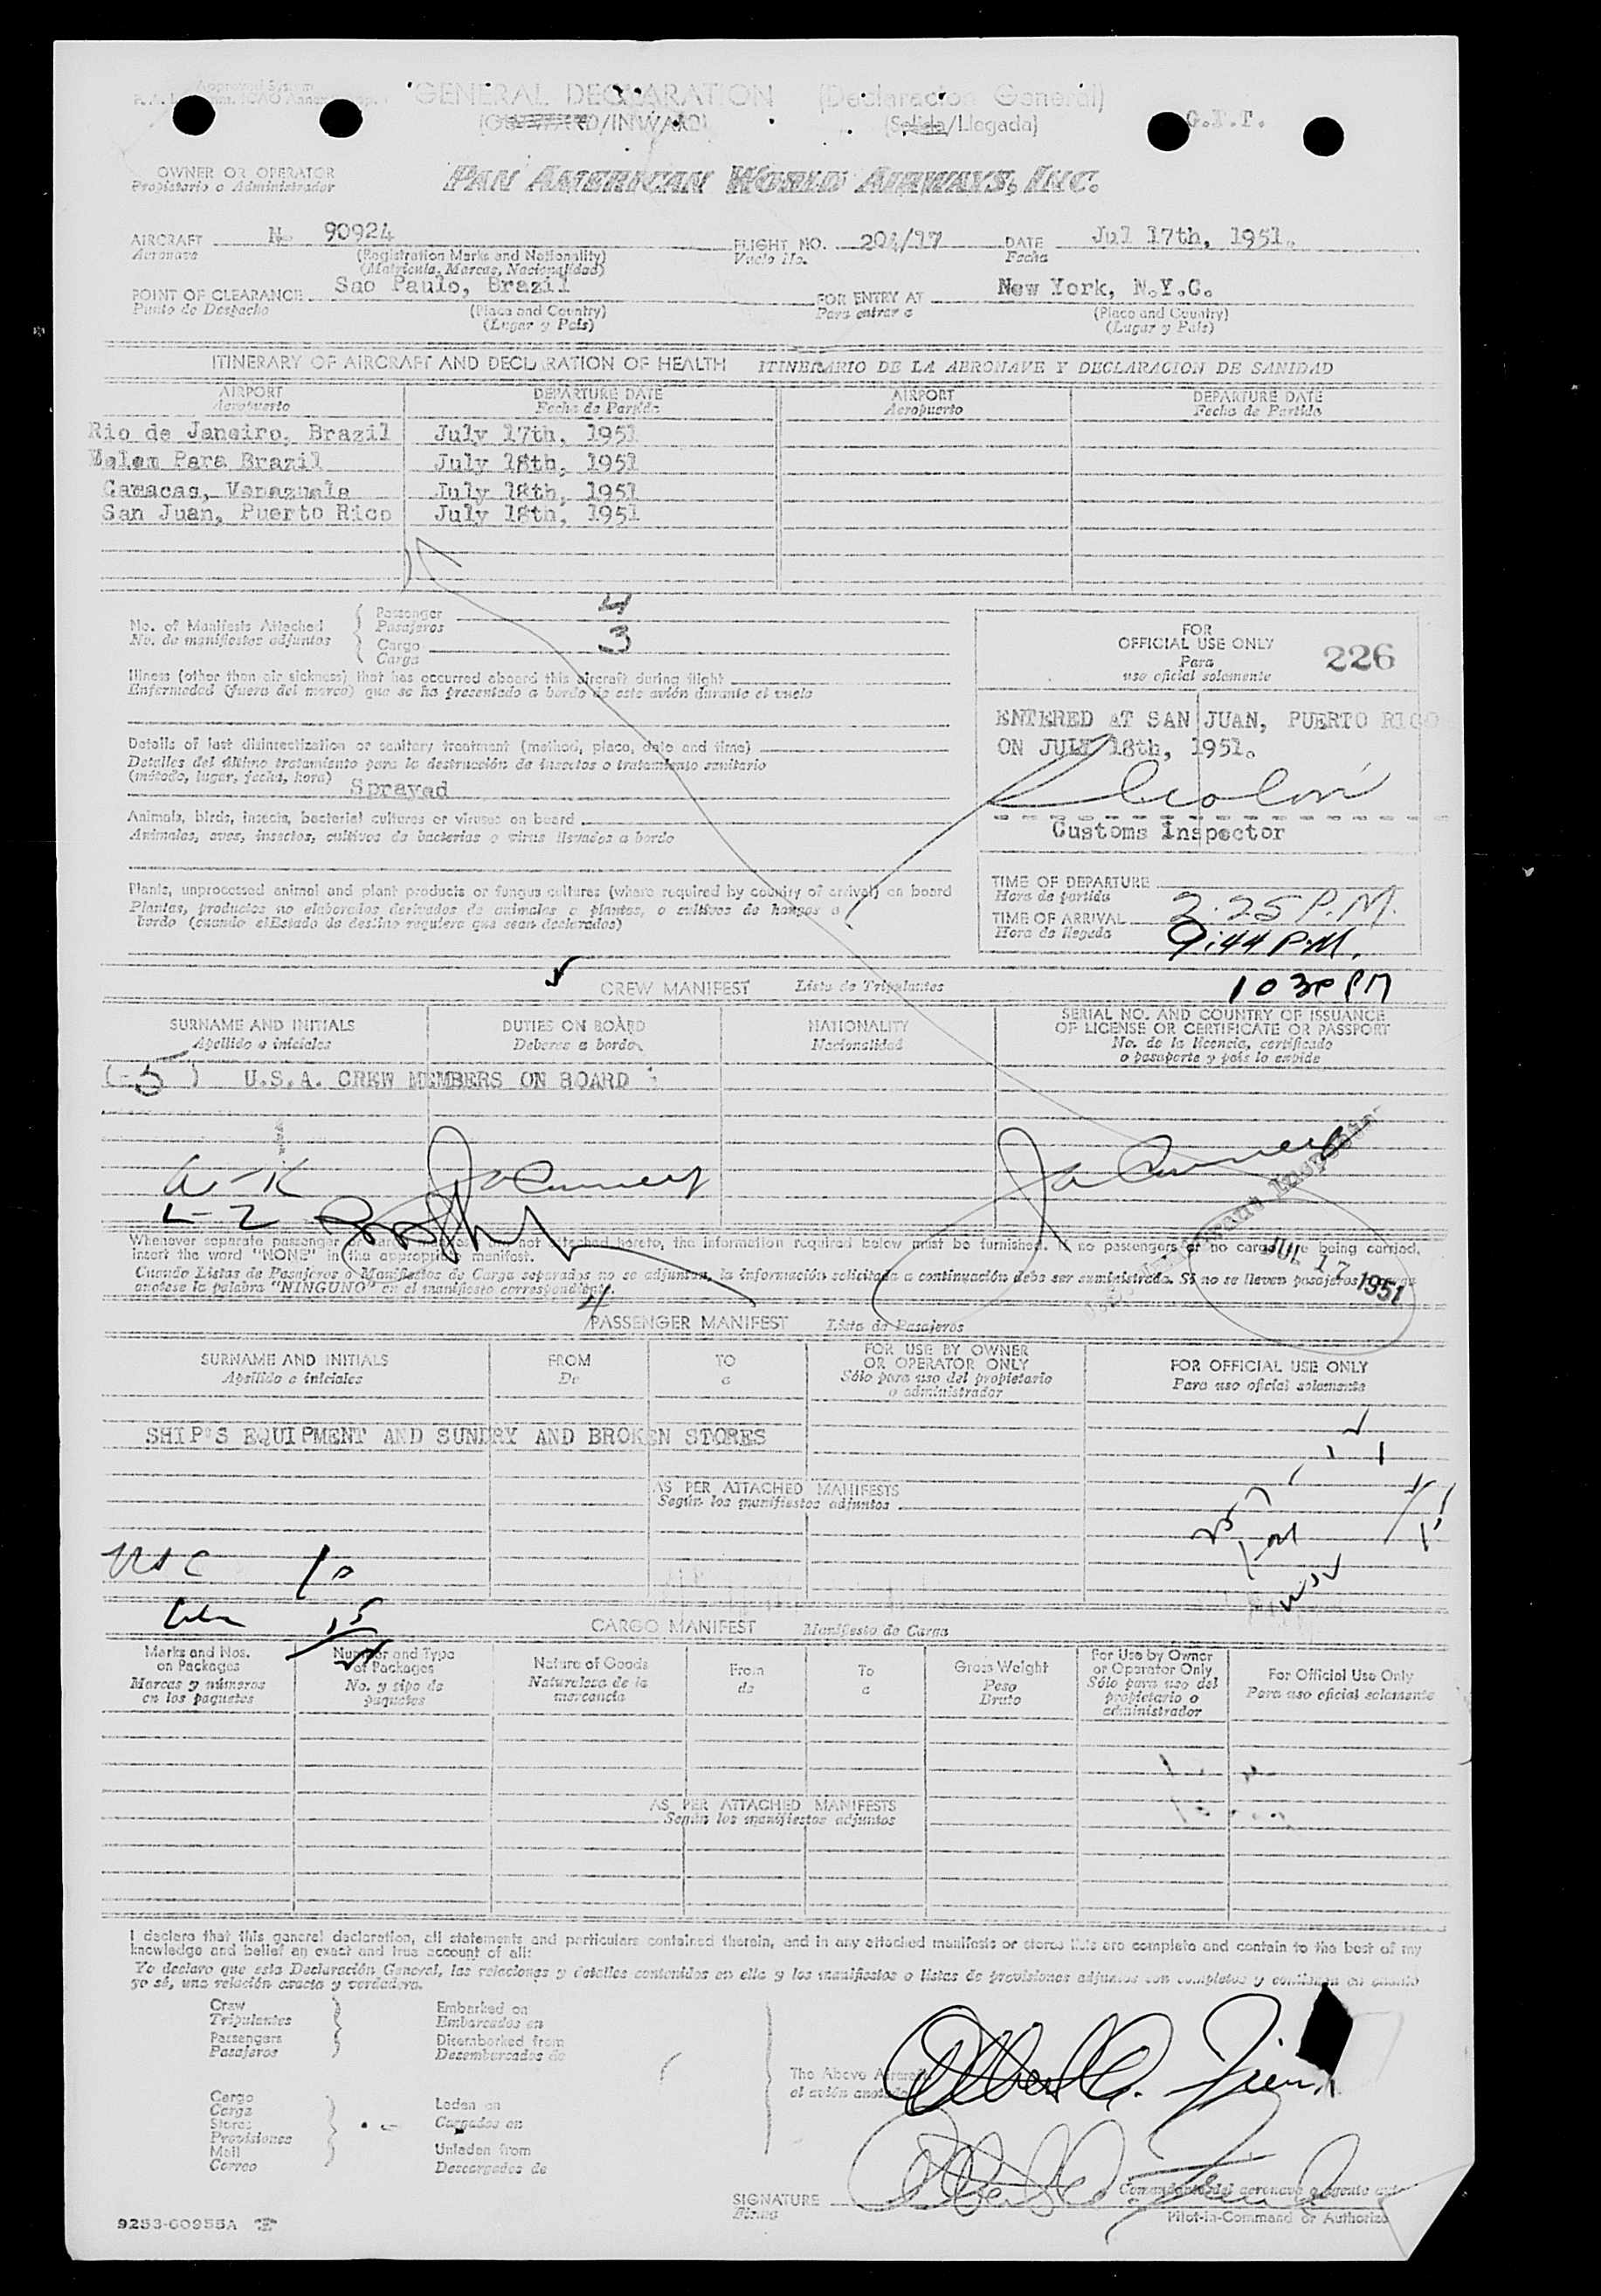 Approved System
GENERAL DECLARATION (Declaracion General)
(OUTWARD/INWARD) (Salida/Llegada) G.T.T.
OWNER OR OPERATOR
Propietario o Administrador
PAN AMERICAN WORLD AIRWAYS, INC.
AIRCRAFT N- 90924 FLIGHT NO. DATE Jul 17th, 1951.
Aeronave (Registration Marks and Nationality) Vuelo No. Fecha
(Matrícula, Marcas, Nacionalidad)
POINT OF CLEARANCE Sao Paulo, Brazil FOR ENTRY AT New York, N.Y.C.
Punto de Despacho (Place and Country) Para entrar a (Place and Country)
(Lugar y País) (Lugar y País)
ITINERARY OF AIRCRAFT AND DECLARATION OF HEALTH ITINERARIO DE LA AERONAVE Y DECLARACION DE SANIDAD
AIRPORT DEPARTURE DATE AIRPORT DEPARTURE DATE
Aeropuerto Fecha de Partida Aeropuerto Fecha de Partida
Rio de Janeiro, Brazil July 17th, 1951
Belem Para Brazil July 18th, 1951
Caracas, Venezuela July 18th, 1951
San Juan, Puerto Rico July 18th, 1951
No. of Manifests Attached Passenger 4
No. de manifiestos adjuntos Pasajeros
Cargo 3
Carga
FOR
OFFICIAL USE ONLY 226
Para
uso oficial solamente
Illness (other than air sickness) that has occurred aboard this aircraft during flight
Enfermedad (fuera del mareo) que se ha presentado a bordo de este avión durante el vuelo
ENTERED AT SAN JUAN, PUERTO RICO
ON JULY 18th, 1951.
Customs Inspector
Details of last disinsectization or sanitary treatment (method, place, date and time)
Detalles del último tratamiento para la destrucción de insectos o tratamiento sanitario
(método, lugar, fecha, hora) Sprayed
Animals, birds, insects, bacterial cultures or viruses on board
Animales, aves, insectos, cultivos de bacterias o virus llevados a bordo
Plants, unprocessed animal and plant products or fungus cultures (where required by country of arrival) on board
Plantas, productos no elaborados derivados de animales o plantas, o cultivos de hongos a
bordo (cuando el Estado de destino requiera que sean declarados)
TIME OF DEPARTURE 2:25 P.M.
Hora de partida
TIME OF ARRIVAL 9:44 P.M.
Hora de llegada
10 30 PM
CREW MANIFEST Lista de Tripulantes
SURNAME AND INITIALS DUTIES ON BOARD NATIONALITY SERIAL NO. AND COUNTRY OF ISSUANCE
Apellido e iniciales Deberes a bordo Nacionalidad OF LICENSE OR CERTIFICATE OR PASSPORT
No. de la licencia, certificado
o pasaporte y país lo expide
(-5-) U.S.A. CREW MEMBERS ON BOARD
W-K
L-2
Immigrant Inspector
JUL 17 1951
Whenever separate passenger or cargo manifests are not attached hereto, the information required below must be furnished. If no passengers or no cargo are being carried,
insert the word "NONE" in the appropriate manifest.
Cuando Listas de Pasajeros o Manifiestos de Carga separados no se adjuntan, la información solicitada a continuación debe ser suministrada. Si no se llevan pasajeros
anótese la palabra "NINGUNO" en el manifiesto correspondiente.
4
PASSENGER MANIFEST Lista de Pasajeros
SURNAME AND INITIALS FROM TO FOR USE BY OWNER FOR OFFICIAL USE ONLY
Apellido e iniciales De a OR OPERATOR ONLY Para uso oficial solamente
Sólo para uso del propietario
o administrador
SHIP'S EQUIPMENT AND SUNDRY AND BROKEN STORES
AS PER ATTACHED MANIFESTS
Según los manifiestos adjuntos
USC 10
15
CARGO MANIFEST Manifiesto de Carga
Marks and Nos. Number and Type Nature of Goods From To Gross Weight For Use by Owner For Official Use Only
on Packages of Packages Naturaleza de la de a Peso or Operator Only Para uso oficial solamente
Marcas y números No. y tipo de mercancía Bruto Sólo para uso del
en los paquetes paquetes propietario o
administrador
AS PER ATTACHED MANIFESTS
Según los manifiestos adjuntos
I declare that this general declaration, all statements and particulars contained therein, and in any attached manifests or stores lists are complete and contain to the best of my
knowledge and belief an exact and true account of all:
Yo declaro que esta Declaración General, las relaciones y detalles contenidos en ella y los manifiestos o listas de provisiones adjuntos son completos y contienen en cuanto
yo sé, una relación exacta y verdadera.
Crew Embarked on
Tripulantes Embarcados en
Passengers Disembarked from
Pasajeros Desembarcados de
The Above Aircraft
el avión anotado
Cargo
Carga Laden on
Stores Cargados en
Provisiones
Mail Unladen from
Correo Descargados de
SIGNATURE Comandante del aeronave o agente
Firma Pilot-in-Command or Authorize
9253-60955A